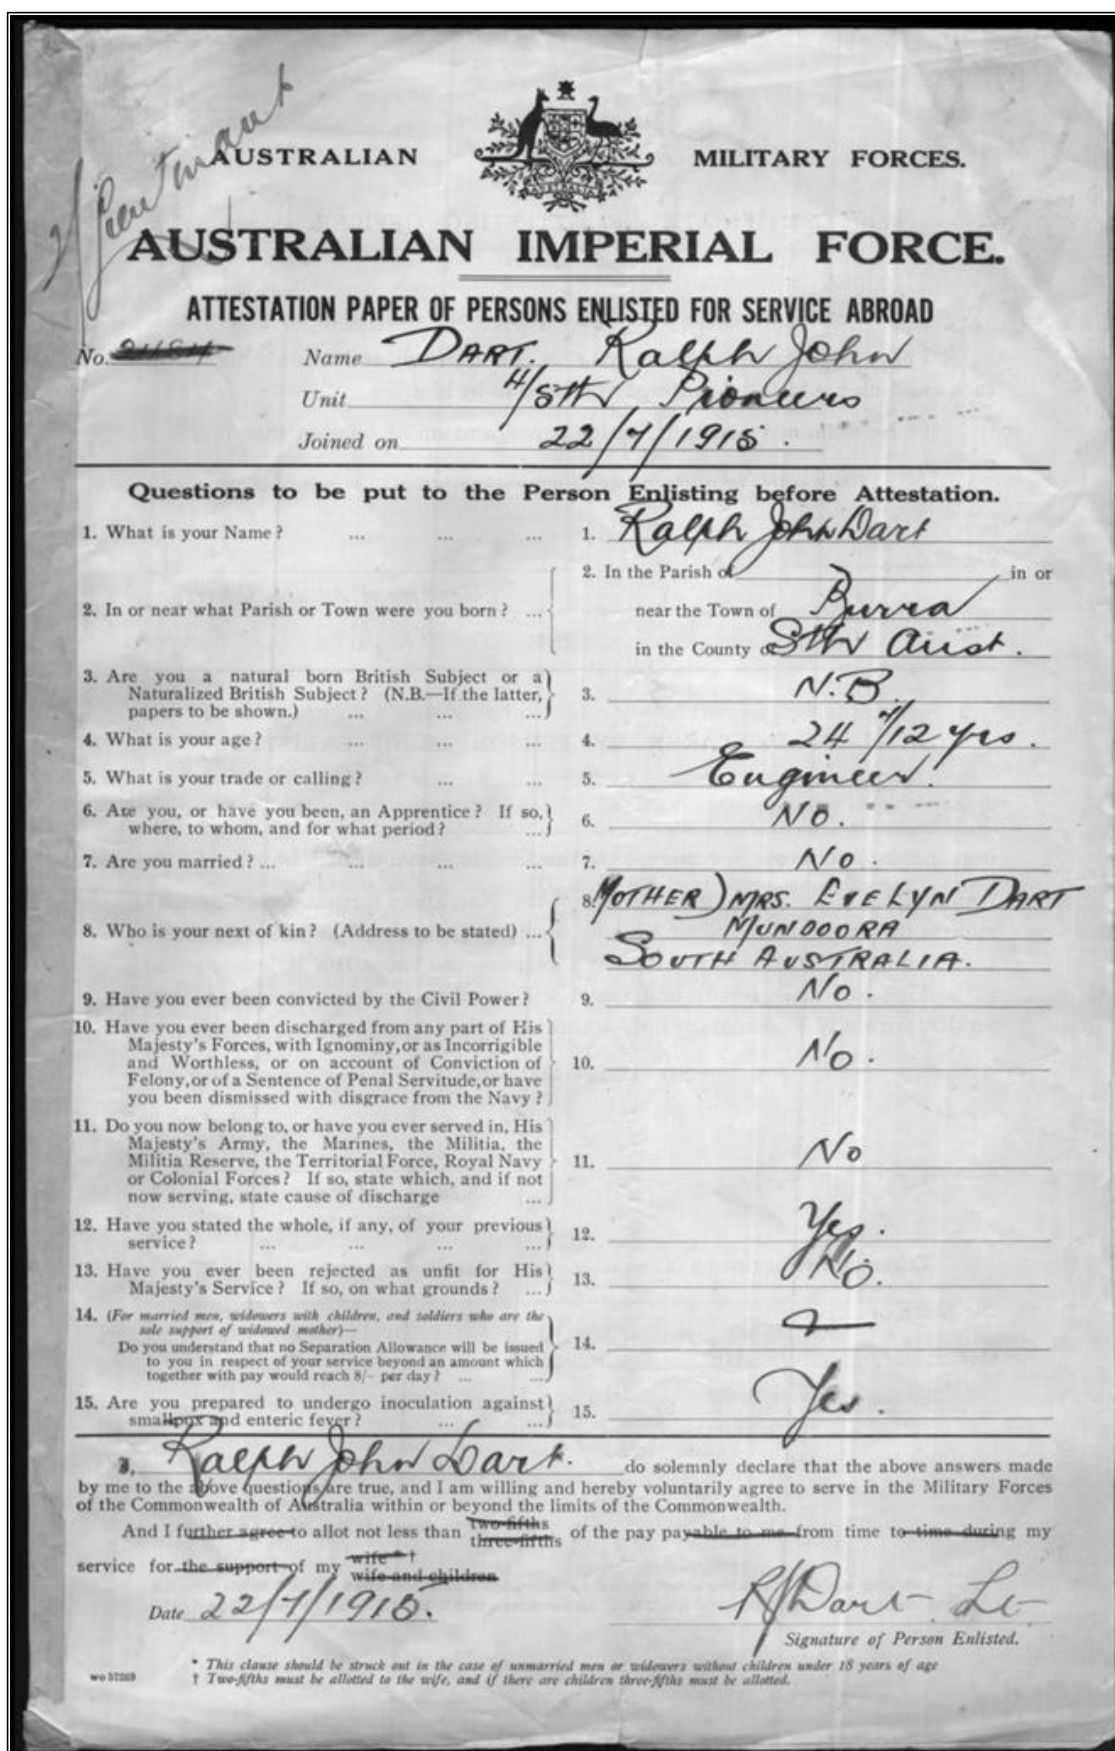 2/Lieutenant
AUSTRALIAN MILITARY FORCES.
AUSTRALIA
AUSTRALIAN IMPERIAL FORCE.
ATTESTATION PAPER OF PERSONS ENLISTED FOR SERVICE ABROAD
No. Name DART. Ralph John
Unit 4/5th Pioneers
Joined on 22/7/1915.
Questions to be put to the Person Enlisting before Attestation.
1. What is your Name? ... ... ... 1. Ralph John Dart
2. In the Parish of in or
2. In or near what Parish or Town were you born? ... near the Town of Burra
in the County of Sth Aust.
3. Are you a natural born British Subject or a
Naturalized British Subject? (N.B.—If the latter, 3. N.B.
papers to be shown.) ... ... ...
4. What is your age? ... ... ... 4. 24 4/12 yrs.
5. What is your trade or calling? ... ... 5. Engineer.
6. Are you, or have you been, an Apprentice? If so,
where, to whom, and for what period? ... 6. No.
7. Are you married? ... ... ... ... 7. No.
8. MOTHER) MRS. EVELYN DART
8. Who is your next of kin? (Address to be stated) ... MUNDOORA
SOUTH AUSTRALIA.
9. Have you ever been convicted by the Civil Power? 9. No.
10. Have you ever been discharged from any part of His
Majesty's Forces, with Ignominy, or as Incorrigible
and Worthless, or on account of Conviction of 10. No.
Felony, or of a Sentence of Penal Servitude, or have
you been dismissed with disgrace from the Navy?
11. Do you now belong to, or have you ever served in, His
Majesty's Army, the Marines, the Militia, the
Militia Reserve, the Territorial Force, Royal Navy 11. No
or Colonial Forces? If so, state which, and if not
now serving, state cause of discharge ...
12. Have you stated the whole, if any, of your previous
service? ... ... ... ... 12. Yes.
13. Have you ever been rejected as unfit for His
Majesty's Service? If so, on what grounds? ... 13. No.
14. (For married men, widowers with children, and soldiers who are the
sole support of widowed mother)—
Do you understand that no Separation Allowance will be issued 14.
to you in respect of your service beyond an amount which
together with pay would reach 8/- per day? ... ...
15. Are you prepared to undergo inoculation against
smallpox and enteric fever? ... ... 15. Yes.
I, Ralph John Dart. do solemnly declare that the above answers made
by me to the above questions are true, and I am willing and hereby voluntarily agree to serve in the Military Forces
of the Commonwealth of Australia within or beyond the limits of the Commonwealth.
And I further agree to allot not less than two-fifths three-fifths of the pay payable to me from time to time during my
service for the support of my wife * † wife and children
Date 22/7/1915. RJ Dart Lt
Signature of Person Enlisted.
* This clause should be struck out in the case of unmarried men or widowers without children under 18 years of age
wo 57269 † Two-fifths must be allotted to the wife, and if there are children three-fifths must be allotted.